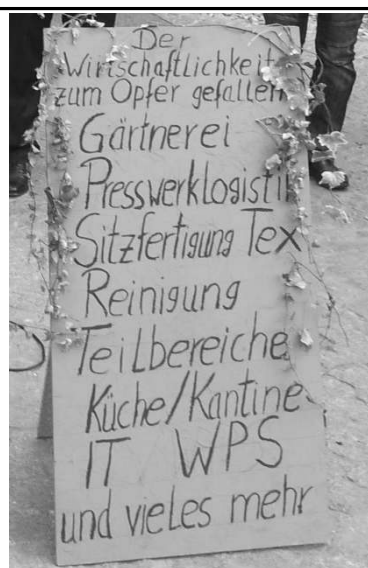 Der
Wirtschaftlichkeit
zum Opfer gefallen
Gärtnerei
Presswerklogistik
Sitzfertigung Tex
Reinigung
Teilbereiche
Küche/Kantine
IT WPS
und vieles mehr